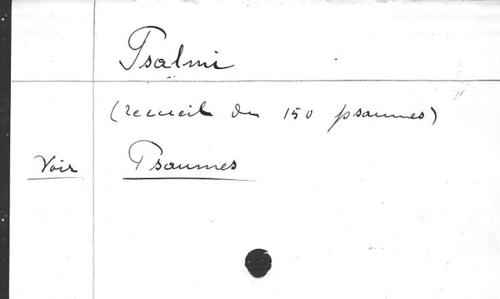 Psalmi
(recueil des 150 psaumes)
Voir Psaumes